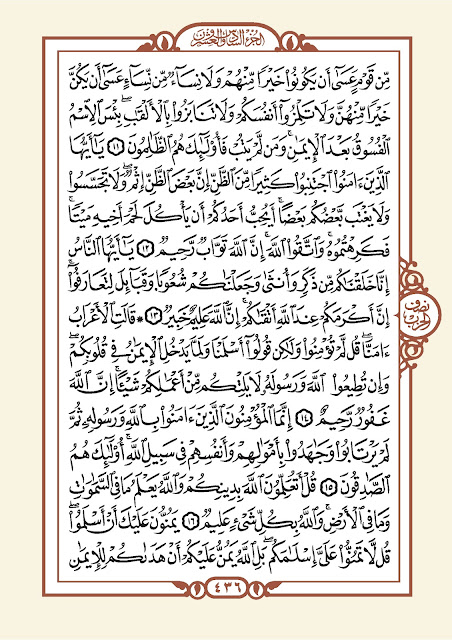 الجزء السادس والعشرون
مِّن قَوْمٍ عَسَىٰٓ أَن يَكُونُوا۟ خَيْرًا مِّنْهُمْ وَلَا نِسَآءٌ مِّن نِّسَآءٍ عَسَىٰٓ أَن يَكُنَّ
خَيْرًا مِّنْهُنَّ ۖ وَلَا تَلْمِزُوٓا۟ أَنفُسَكُمْ وَلَا تَنَابَزُوا۟ بِٱلْأَلْقَٰبِ ۖ بِئْسَ ٱلِٱسْمُ
ٱلْفُسُوقُ بَعْدَ ٱلْإِيمَٰنِ ۚ وَمَن لَّمْ يَتُبْ فَأُو۟لَٰٓئِكَ هُمُ ٱلظَّٰلِمُونَ ١١ يَٰٓأَيُّهَا
ٱلَّذِينَ ءَامَنُوا۟ ٱجْتَنِبُوا۟ كَثِيرًا مِّنَ ٱلظَّنِّ إِنَّ بَعْضَ ٱلظَّنِّ إِثْمٌ ۖ وَلَا تَجَسَّسُوا۟
وَلَا يَغْتَب بَّعْضُكُم بَعْضًا ۚ أَيُحِبُّ أَحَدُكُمْ أَن يَأْكُلَ لَحْمَ أَخِيهِ مَيْتًا
فَكَرِهْتُمُوهُ ۚ وَٱتَّقُوا۟ ٱللَّهَ ۚ إِنَّ ٱللَّهَ تَوَّابٌ رَّحِيمٌ ١٢ يَٰٓأَيُّهَا ٱلنَّاسُ
إِنَّا خَلَقْنَٰكُم مِّن ذَكَرٍ وَأُنثَىٰ وَجَعَلْنَٰكُمْ شُعُوبًا وَقَبَآئِلَ لِتَعَارَفُوٓا۟ ۚ
إِنَّ أَكْرَمَكُمْ عِندَ ٱللَّهِ أَتْقَىٰكُمْ ۚ إِنَّ ٱللَّهَ عَلِيمٌ خَبِيرٌ ١٣ ۞ قَالَتِ ٱلْأَعْرَابُ
ءَامَنَّا ۖ قُل لَّمْ تُؤْمِنُوا۟ وَلَٰكِن قُولُوٓا۟ أَسْلَمْنَا وَلَمَّا يَدْخُلِ ٱلْإِيمَٰنُ فِى قُلُوبِكُمْ ۖ
وَإِن تُطِيعُوا۟ ٱللَّهَ وَرَسُولَهُۥ لَا يَلِتْكُم مِّنْ أَعْمَٰلِكُمْ شَيْـًٔا ۚ إِنَّ ٱللَّهَ
غَفُورٌ رَّحِيمٌ ١٤ إِنَّمَا ٱلْمُؤْمِنُونَ ٱلَّذِينَ ءَامَنُوا۟ بِٱللَّهِ وَرَسُولِهِۦ ثُمَّ
لَمْ يَرْتَابُوا۟ وَجَٰهَدُوا۟ بِأَمْوَٰلِهِمْ وَأَنفُسِهِمْ فِى سَبِيلِ ٱللَّهِ ۚ أُو۟لَٰٓئِكَ هُمُ
ٱلصَّٰدِقُونَ ١٥ قُلْ أَتُعَلِّمُونَ ٱللَّهَ بِدِينِكُمْ وَٱللَّهُ يَعْلَمُ مَا فِى ٱلسَّمَٰوَٰتِ
وَمَا فِى ٱلْأَرْضِ ۚ وَٱللَّهُ بِكُلِّ شَىْءٍ عَلِيمٌ ١٦ يَمُنُّونَ عَلَيْكَ أَنْ أَسْلَمُوا۟ ۖ
قُل لَّا تَمُنُّوا۟ عَلَىَّ إِسْلَٰمَكُم ۖ بَلِ ٱللَّهُ يَمُنُّ عَلَيْكُمْ أَنْ هَدَىٰكُمْ لِلْإِيمَٰنِ
نصف
الحزب
٤٣٦